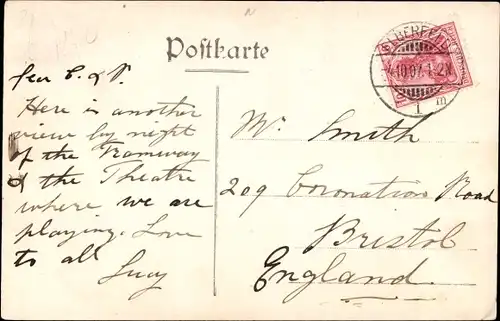 Postkarte
ELBERFELD
4.10.07. 1-2N
1 m
Dear E. & P.
Here is another
view by night
of the Tramway
& the Theatre
where we are
playing. Love
to all
Lucy
Mr Smith
209 Coronation Road
Bristol
England